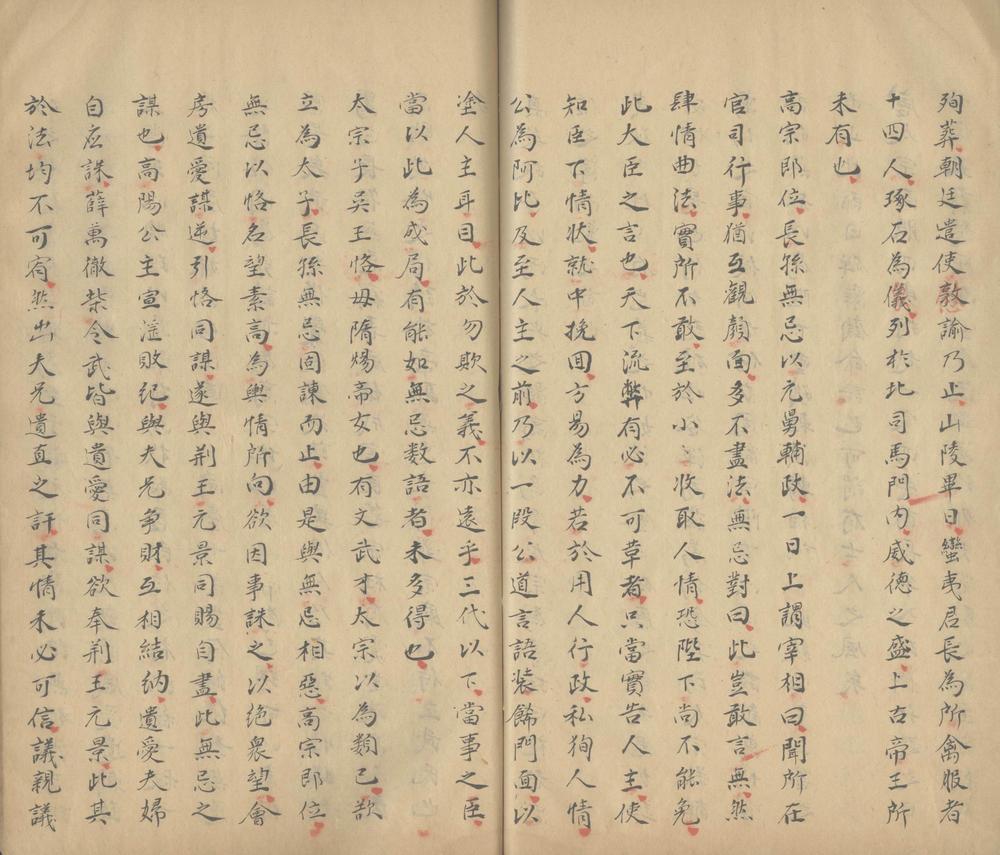 殉葬朝廷遣使敦諭乃止山陵畢日蠻夷君長為所禽服者
十四人琢石為儀列於北司馬門內威德之盛上古帝王所
未有也
高宗即位長孫無忌以元舅輔政一日上謂宰相曰聞所在
官司行事猶互觀顏面多不盡法無忌對曰此豈敢言無然
肆情曲法實所不敢至於小小收取人情恐陛下尚不能免
此大臣之言也天下流弊有必不可革者只當實告人主使
知臣下情狀就中挽回方易為力若於用人行政私狥人情
公為阿比及至人主之前乃以一段公道言語裝餙門面以
塗人主耳目此於勿欺之義不亦遠乎三代以下當事之臣
當以此為成局有能如無忌数語者未多得也
太宗子吳王恪毋隋煬帝女也有文武才太宗以為類己欲
立為太子長孫無忌固諫而止由是與無忌相惡高宗即位
無忌以恪名望素高為輿情所向欲因事誅之以絶衆望會
房遺愛謀逆引恪同謀遂與荆王元景同賜自盡此無忌之
謀也高陽公主宣淫敗紀與夫兄争財互相結納遺愛夫婦
自應誅薛萬徹柴令武皆與遺愛同謀欲奉荆王元景此其
於法均不可宥然出夫兄遺直之訐其情未必可信議親議